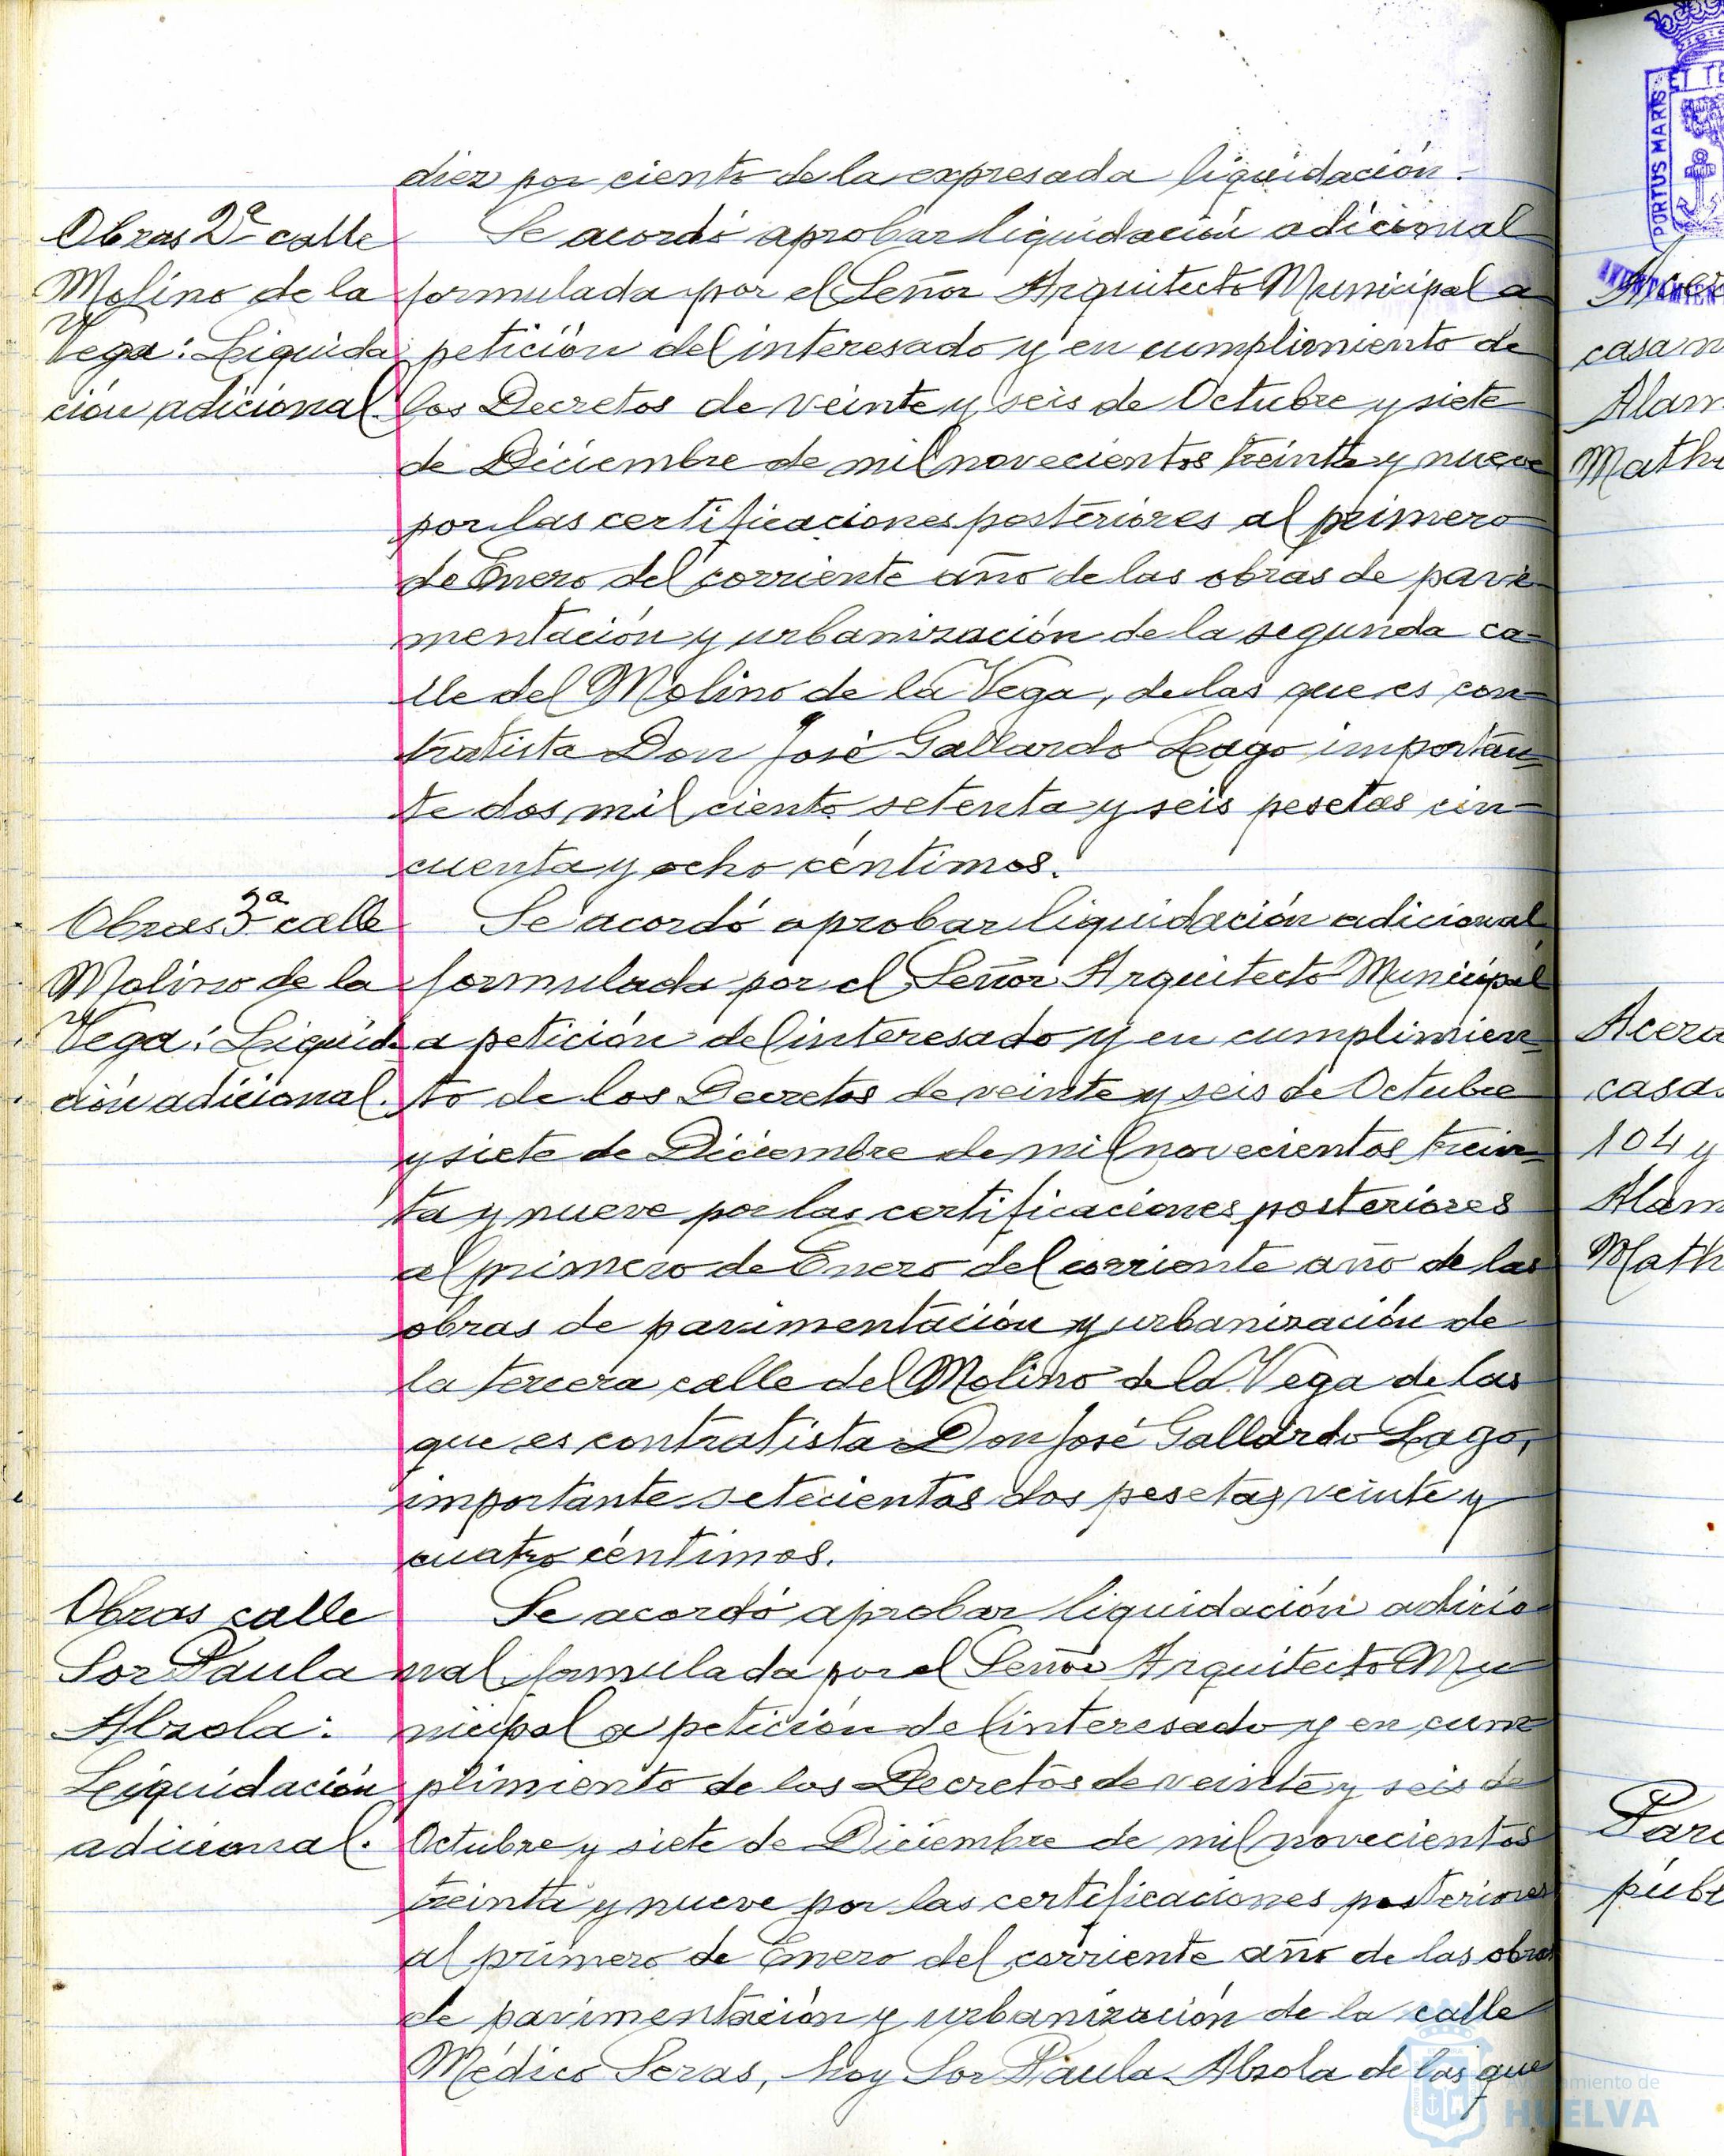 diez por ciento de la expresada liquidación.
Obras 2ª calle
Molino de la
Vega: Liquida
ción adicional.
Se acordó aprobar liquidación adicional
formulada por el Señor Arquitecto Municipal a
petición del interesado y en cumplimiento de
los Decretos de veinte y seis de Octubre y siete
de Diciembre de mil novecientos treinta y nueve
por las certificaciones posteriores al primero
de Enero del corriente año de las obras de pavi-
mentación y urbanización de la segunda ca-
lle del Molino de la Vega, de las que es con-
tratista Don José Gallardo Lago importan-
te dos mil ciento setenta y seis pesetas cin-
cuenta y ocho céntimos.
Obras 3ª calle
Molino de la
Vega: Liquida
ción adicional.
Se acordó aprobar liquidación adicional
formulada por el Señor Arquitecto Municipal
a petición del interesado y en cumplimien-
to de los Decretos de veinte y seis de Octubre
y siete de Diciembre de mil novecientos trein-
ta y nueve por las certificaciones posteriores
al primero de Enero del corriente año de las
obras de pavimentación y urbanización de
la tercera calle del Molino de la Vega de las
que es contratista Don José Gallardo Lago,
importante setecientas dos pesetas veinte y
cuatro céntimos.
Obras calle
Sor Paula
Alzola:
Liquidación
adicional.
Se acordó aprobar liquidación adicio-
nal formulada por el Señor Arquitecto Mu-
nicipal a petición del interesado y en cum-
plimiento de los Decretos de veinte y seis de
Octubre y siete de Diciembre de mil novecientos
treinta y nueve por las certificaciones posteriores
al primero de Enero del corriente año de las obras
de pavimentación y urbanización de la calle
Médico Seras, hoy Sor Paula Alzola de las que
PORTUS MARIS
ET TE
casa n
Alam
Math
Acera
casas
104 y
Alam
Math
Par
públ
Ayuntamiento de
HUELVA